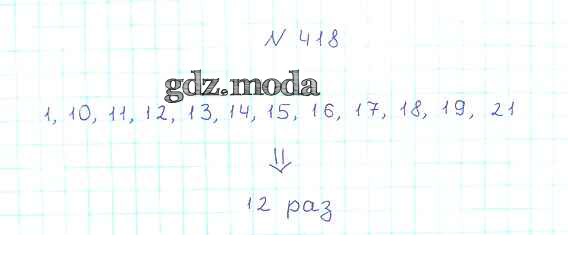 N 418
gdz.moda
1, 10, 11, 12, 13, 14, 15, 16, 17, 18, 19, 21
⇓
12 раз